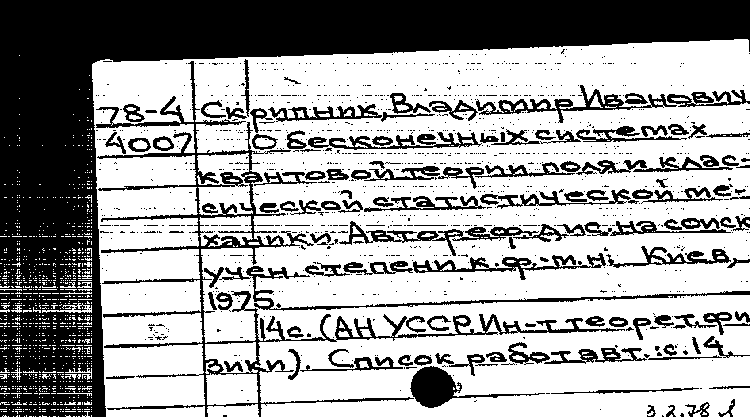 78-4 Скрипник, Владимир Иванович
4007 О бесконечных системах
квантовой теории поля и клас-
сической статистической ме-
ханики. Автореф. дис. на соиск.
учен. степени к.ф.-м.н. Киев,
1975.
14с. (АН УССР. Ин-т теорет. фи
зики). Список работ авт.: с.14.
3.2.78